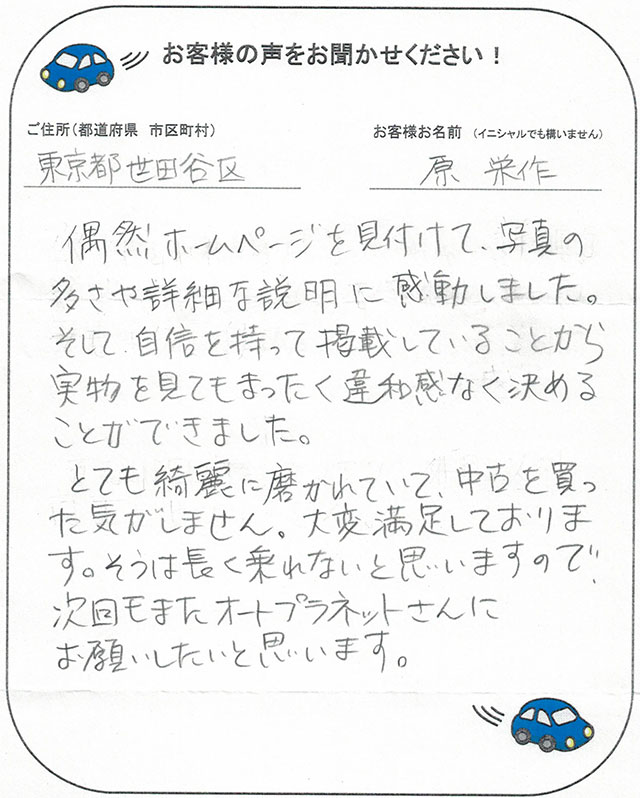 お客様の声をお聞かせください！
ご住所（都道府県　市区町村）
お客様お名前　（イニシャルでも構いません）
東京都世田谷区
原　栄作
偶然ホームページを見付けて、写真の
多さや詳細な説明に感動しました。
そして自信を持って掲載していることから
実物を見てもまったく違和感なく決める
ことができました。
とても綺麗に磨かれていて、中古を買っ
た気がしません。大変満足しておりま
す。そうは長く乗れないと思いますので、
次回もまたオートプラネットさんに
お願いしたいと思います。